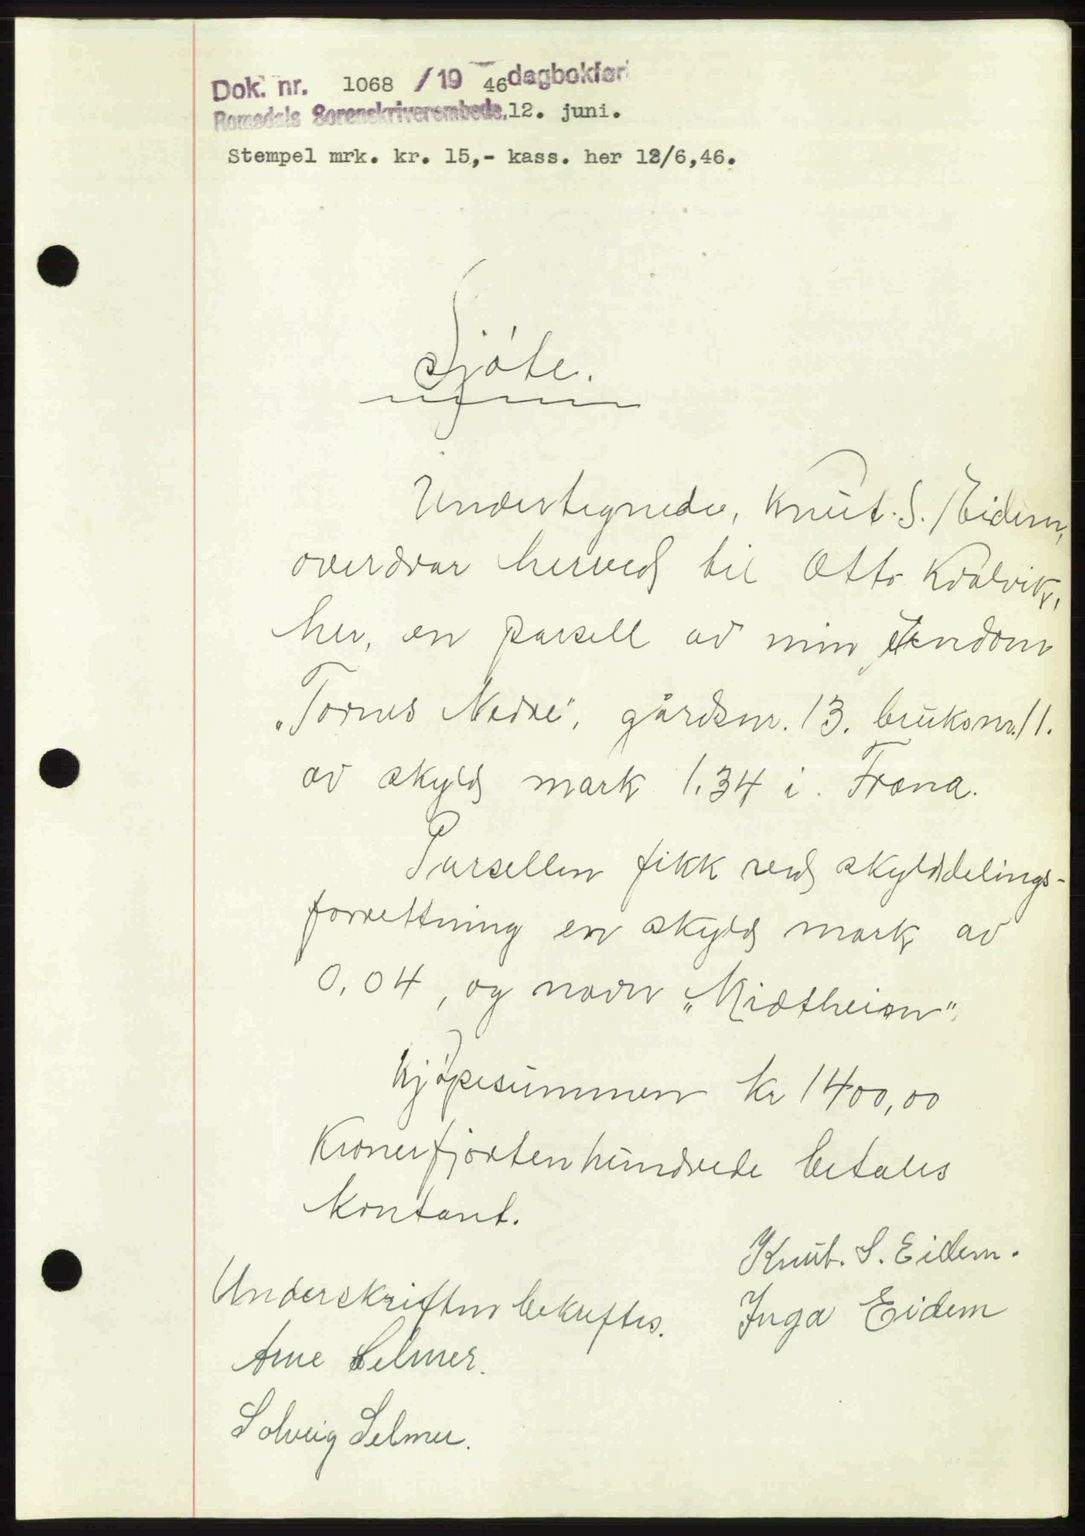 Dok. nr. 1068 / 19 46 dagbokført
Romsdals Sorenskriverembede, 12. juni.
Stempel mrk. kr. 15,- kass. her 12/6,46.
Sjöte.
Undertegnede, Knut. S. Eidem,
overdrar herved til Otto Kvalvik,
her, en parsell av min eiendom
„Tornes Nedre", gårdsnr. 13. bruksnr. 11.
av skyld mark 1.34 i. Fræna.
Parsellen fikk ved skylddelings-
forrettning en skyld mark av
0,04, og navn „Midtheim".
Kjöpesummen kr 1400,00
Kroner fjorten hundrede betales
kontant.
Knut. S. Eidem.
Inga Eidem
Underskriften bekreftes.
Arne Selmer.
Solveig Selmer.